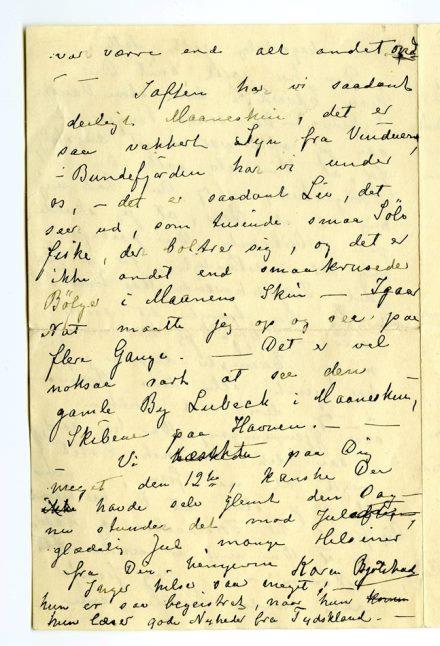 var værre end alt andet ondt
Iaften har vi saadant
deiligt Maaneskin, det er
saa vakkert Syn fra Vinduerne,
i Bundefjorden har vi under
os, – det er saadant Liv, det
seer ud, som tusinde smaa Sölv
fiske, der boltrer sig, og det er
ikke andet end smaa krusede
Bölger i Maanens Skin – Igaar
Nat maatte jeg op og see paa
flere Gange. – Det er vel
noksaa rart at see den
gamle By Lubeck i Maaneskin,
Skibene paa Havnen. – –
Vi tænkte paa Dig
meget den 12te, kanske Du
ikke havde selv glemt den Dag –
nu stunder det mod Jul,
glædelig Jul, mange Hilsener
fra Din hengivne Karen Bjölstad
Inger hilser saa meget,
hun er saa begeistret, naar hun
hun læser gode Nyheder fra Tydskland. –